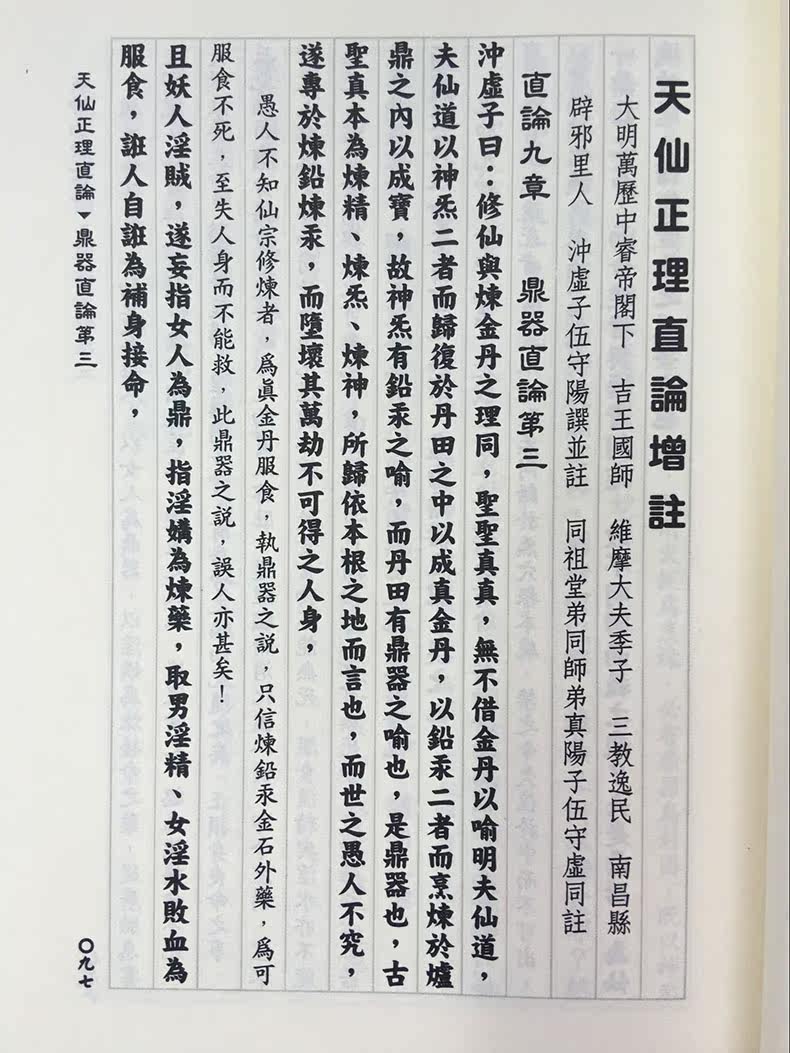 天仙正理直論增註
大明萬歷中睿帝閣下　吉王國師　維摩大夫季子　三教逸民　南昌縣
辟邪里人　沖虛子伍守陽譔並註　同祖堂弟同師弟真陽子伍守虛同註
直論九章　鼎器直論第三
沖虛子曰：修仙與煉金丹之理同，聖聖真真，無不借金丹以喻明夫仙道，
夫仙道以神炁二者而歸復於丹田之中以成真金丹，以鉛汞二者而烹煉於爐
鼎之內以成寶，故神炁有鉛汞之喻，而丹田有鼎器之喻也，是鼎器也，古
聖真本為煉精、煉炁、煉神，所歸依本根之地而言也，而世之愚人不究，
遂專於煉鉛煉汞，而墮壞其萬劫不可得之人身，
愚人不知仙宗修煉者，爲眞金丹服食，執鼎器之説，只信煉鉛汞金石外藥，爲可
服食不死，至失人身而不能救，此鼎器之説，誤人亦甚矣！
且妖人淫賊，遂妄指女人為鼎，指淫媾為煉藥，取男淫精、女淫水敗血為
服食，誑人自誑為補身接命，
天仙正理直論▼鼎器直論第三
〇九七